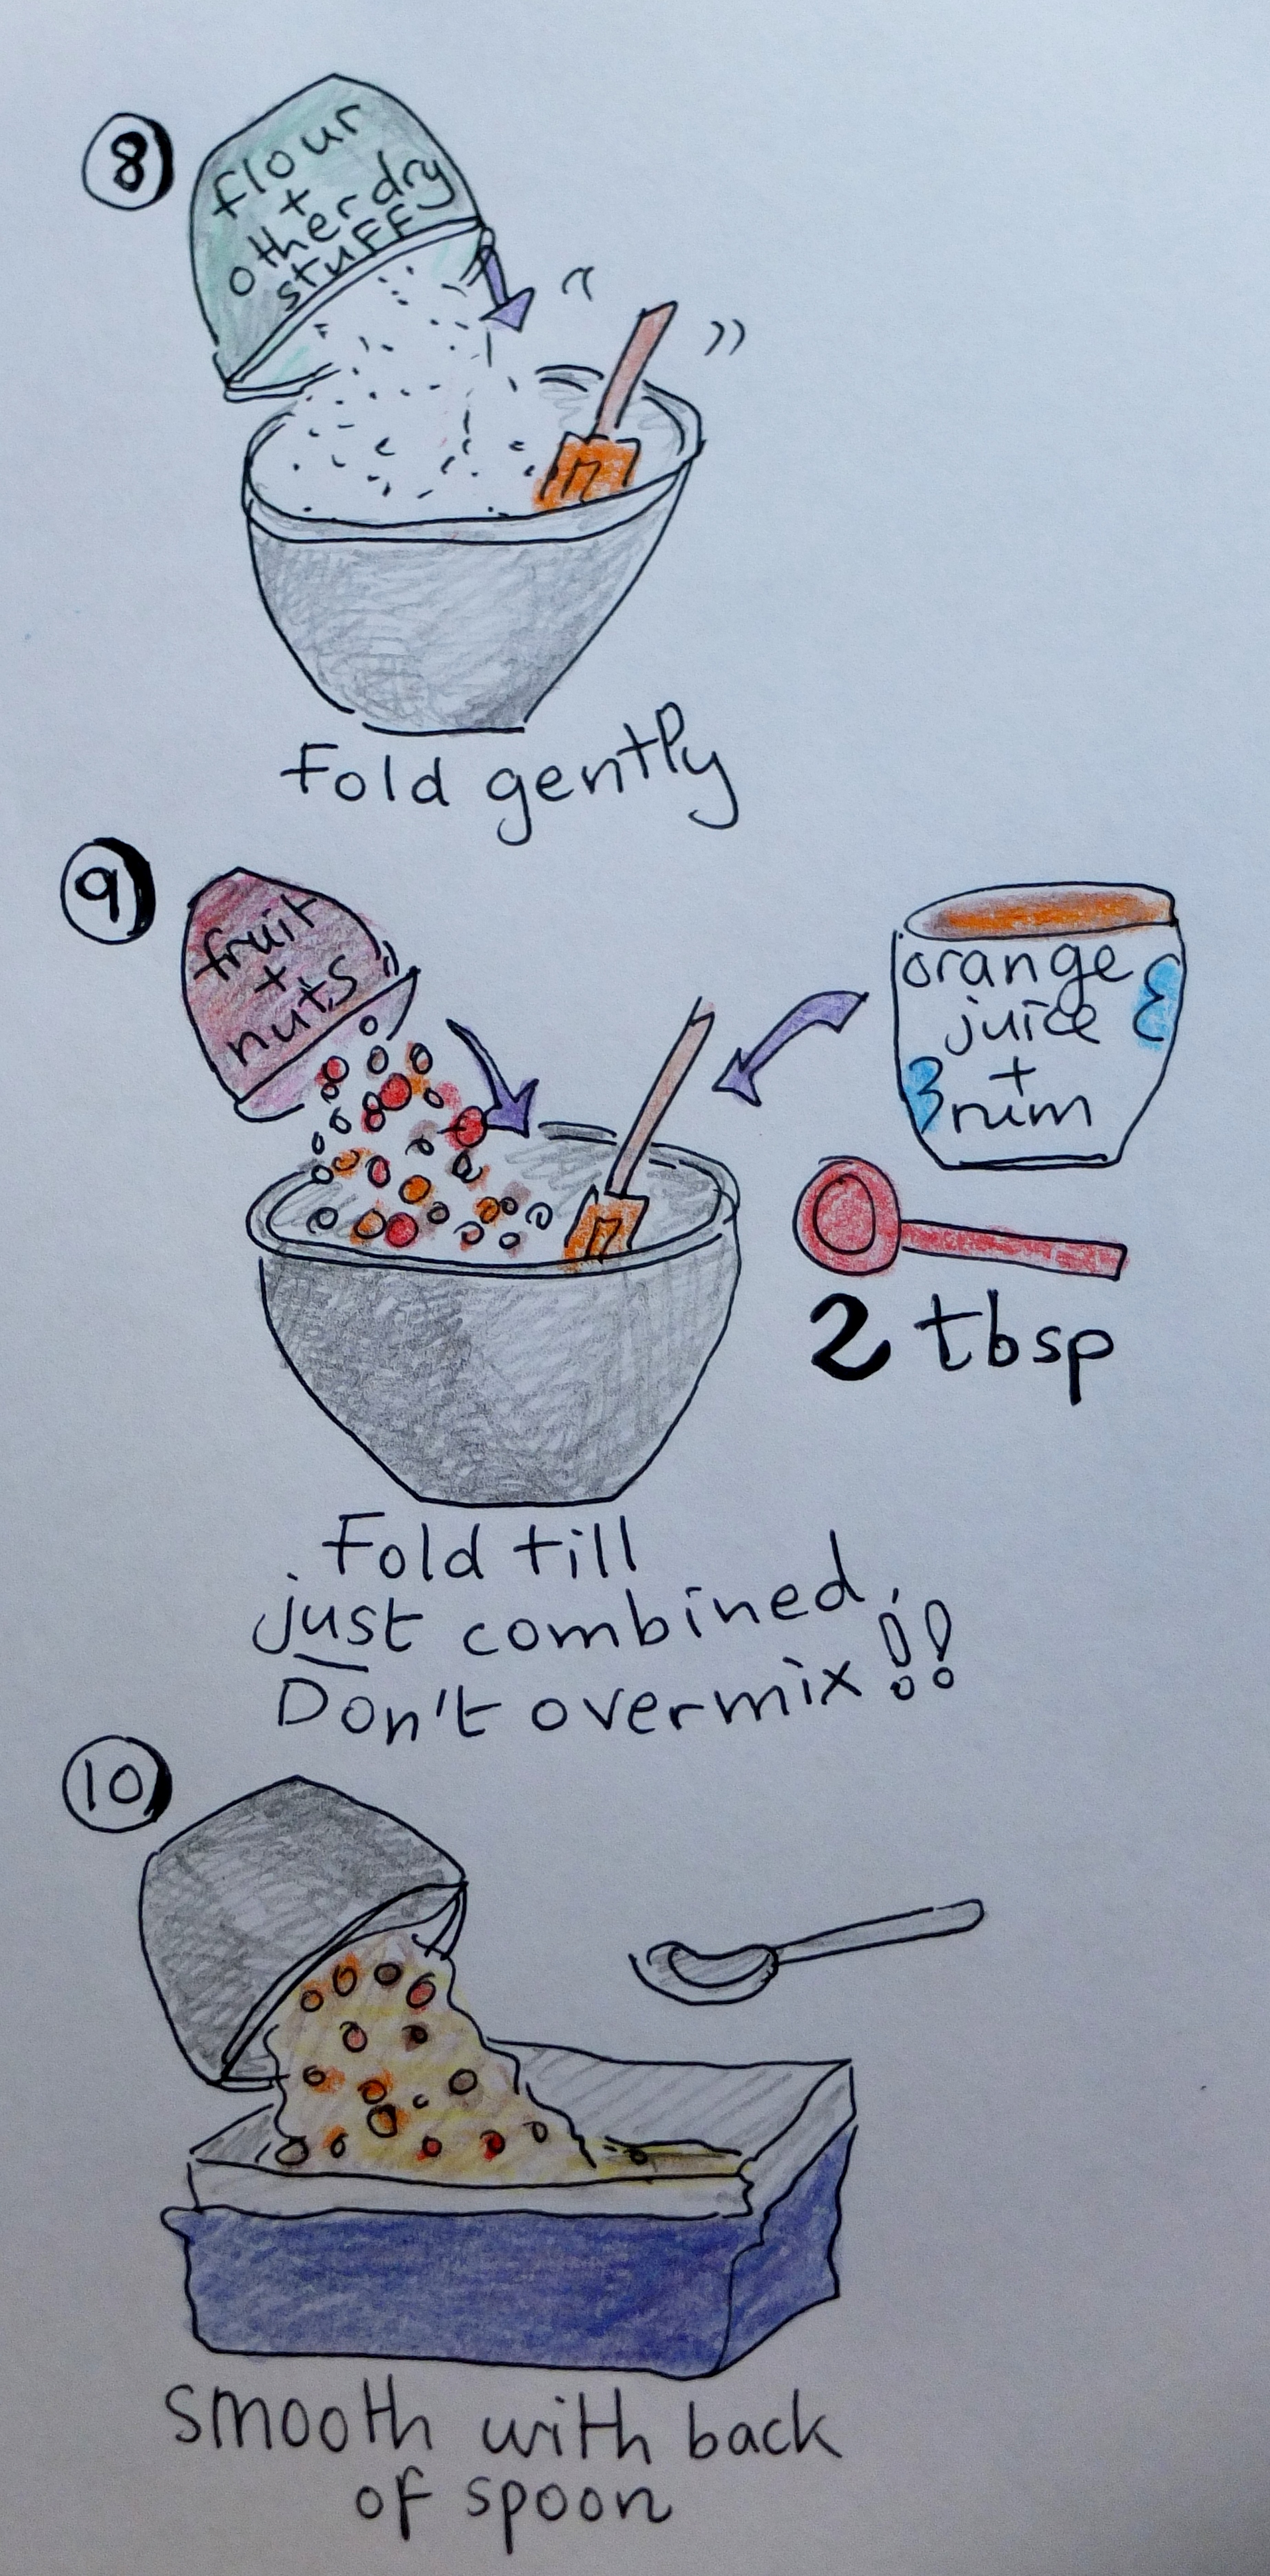 8
flour
+
other dry
stuff
Fold gently
9
fruit
+
nuts
orange
juice
+
rum
2 tbsp
Fold till
just combined,
Don't overmix!!
10
smooth with back
of spoon